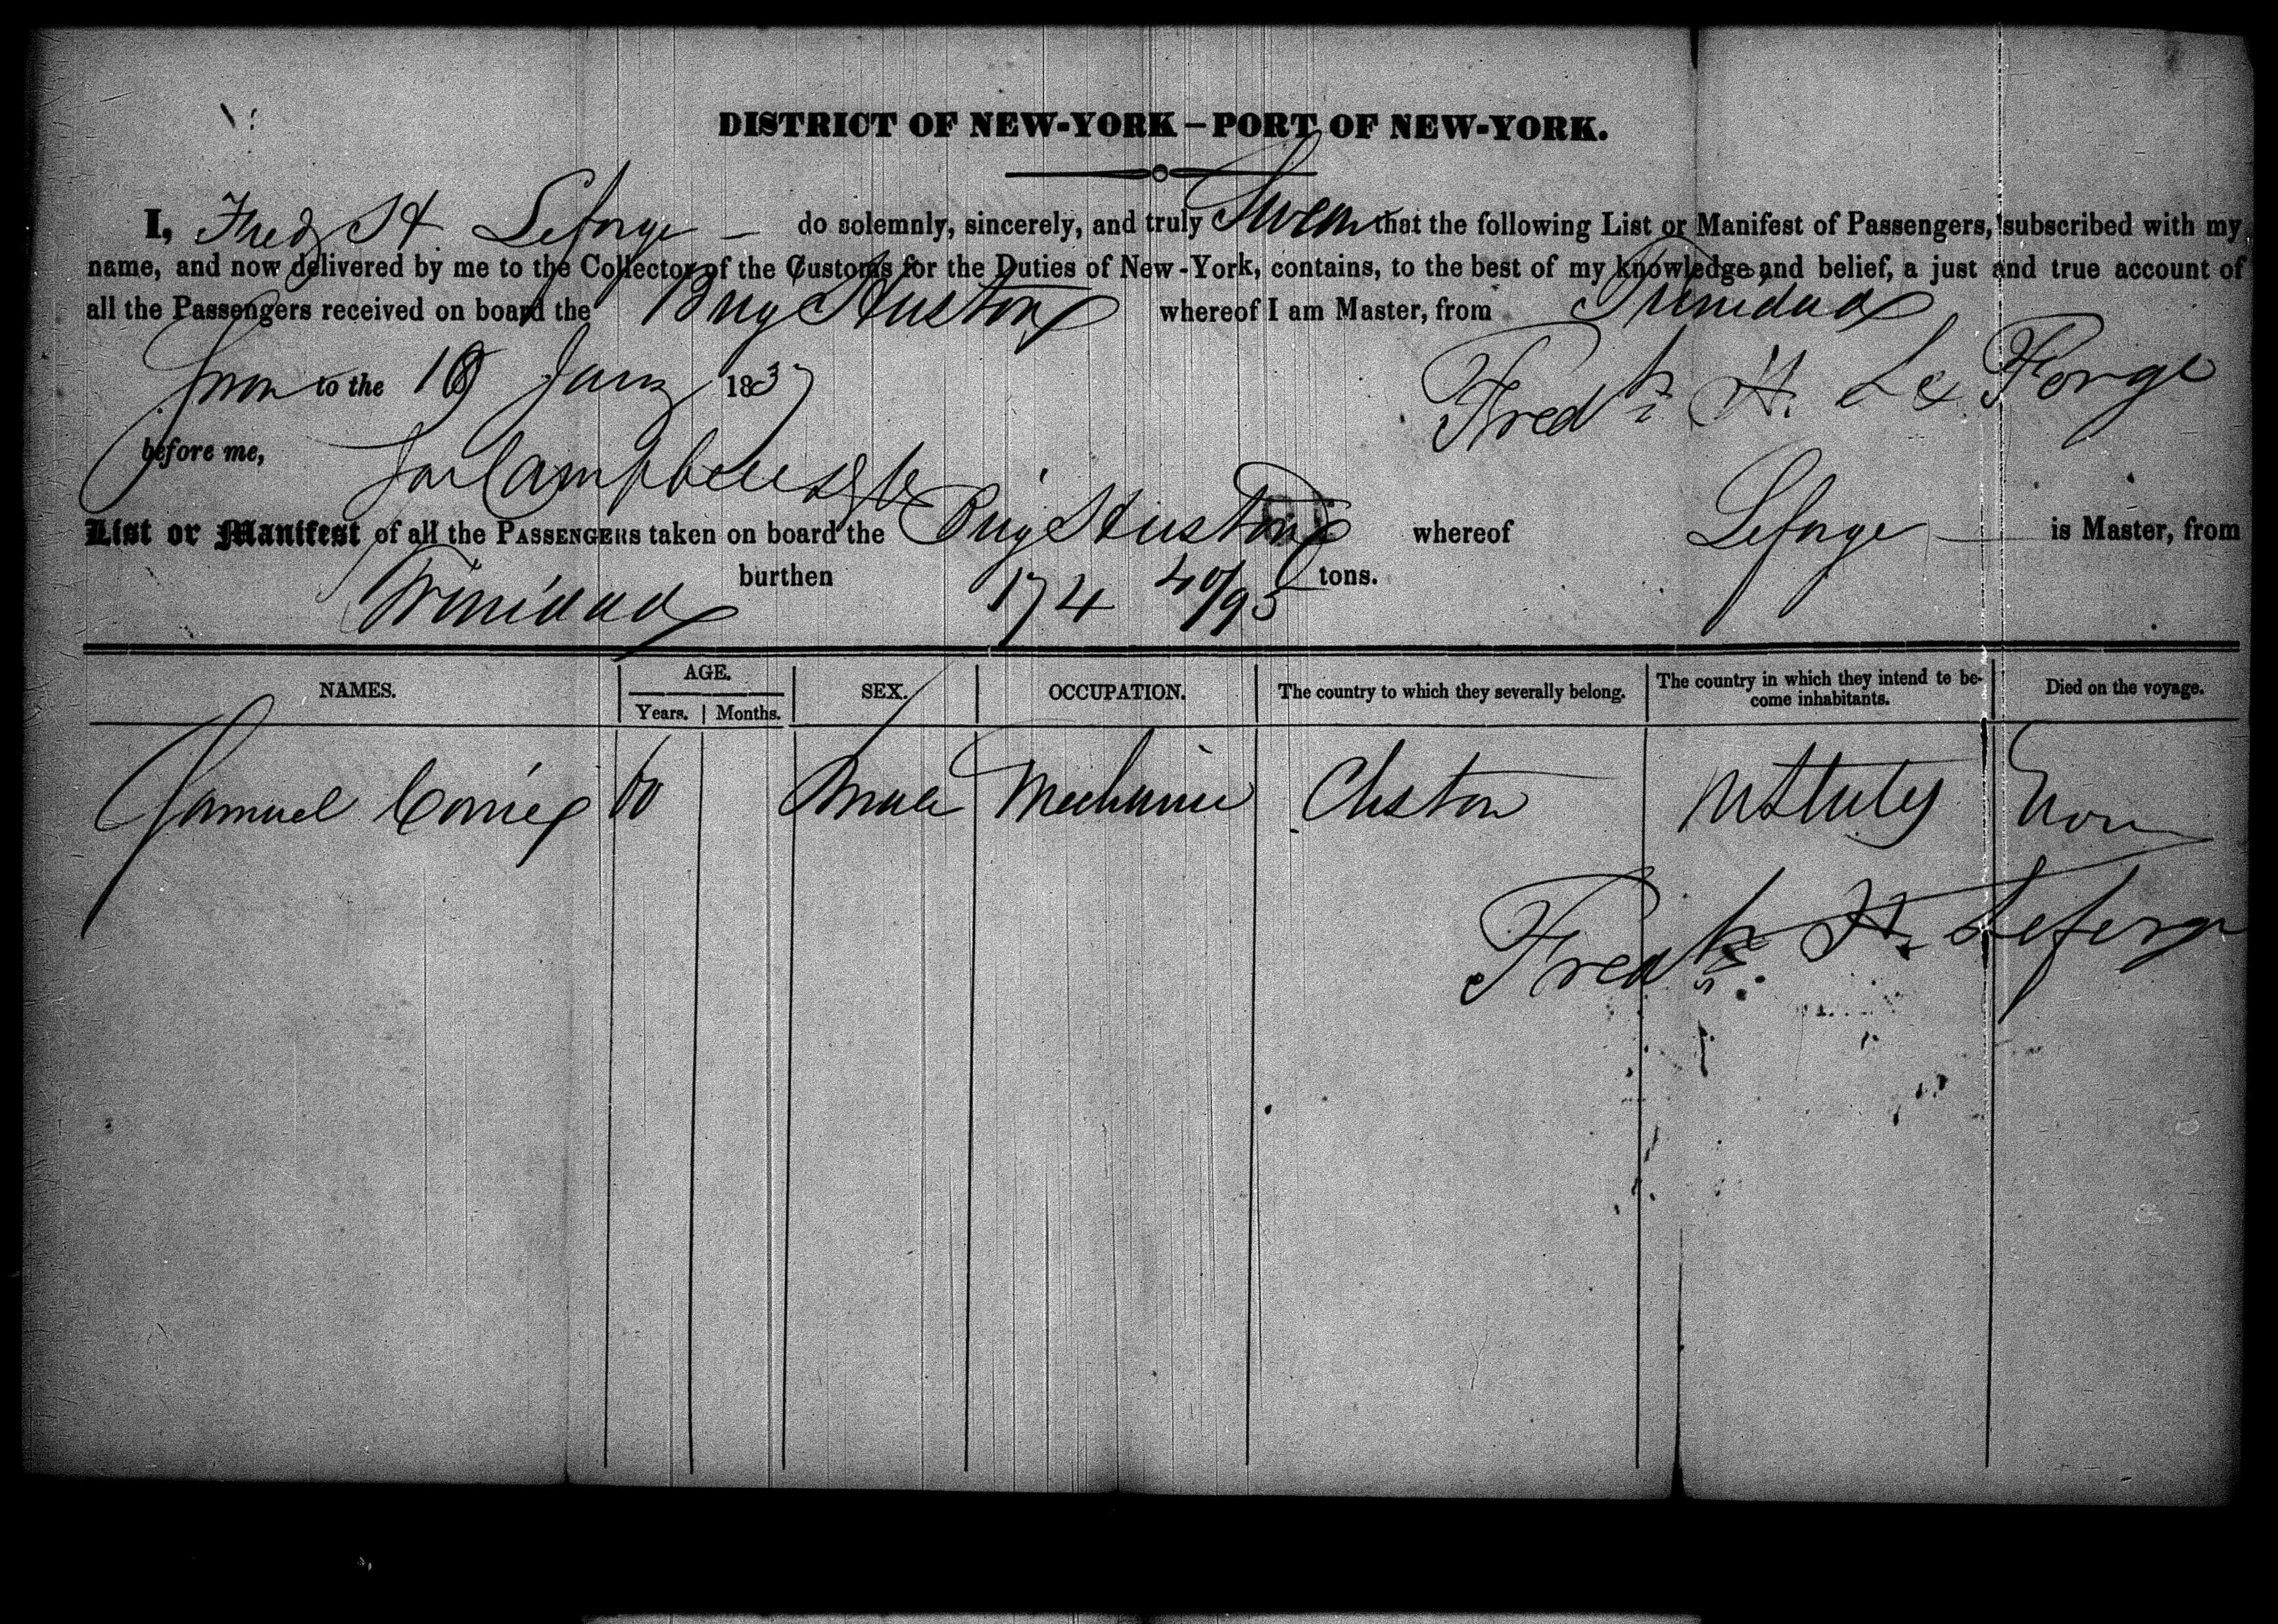 DISTRICT OF NEW-YORK – PORT OF NEW-YORK.
I, Fredk H. Leforge — do solemnly, sincerely, and truly Swear that the following List or Manifest of Passengers, subscribed with my
name, and now delivered by me to the Collector of the Customs for the Duties of New-York, contains, to the best of my knowledge and belief, a just and true account of
all the Passengers received on board the Brig Huston whereof I am Master, from Trinidad
to the 18 Jany 1837
Fredk H. Le Forge
before me,
List or Manifest of all the PASSENGERS taken on board the Brig Huston whereof Leforge — is Master, from
Trinidad burthen 174 40/95 tons.
NAMES. AGE. Years. Months. SEX. OCCUPATION. The country to which they severally belong. The country in which they intend to become inhabitants. Died on the voyage.
Samuel 60 Male Mechanic
Fredk H. Leforge